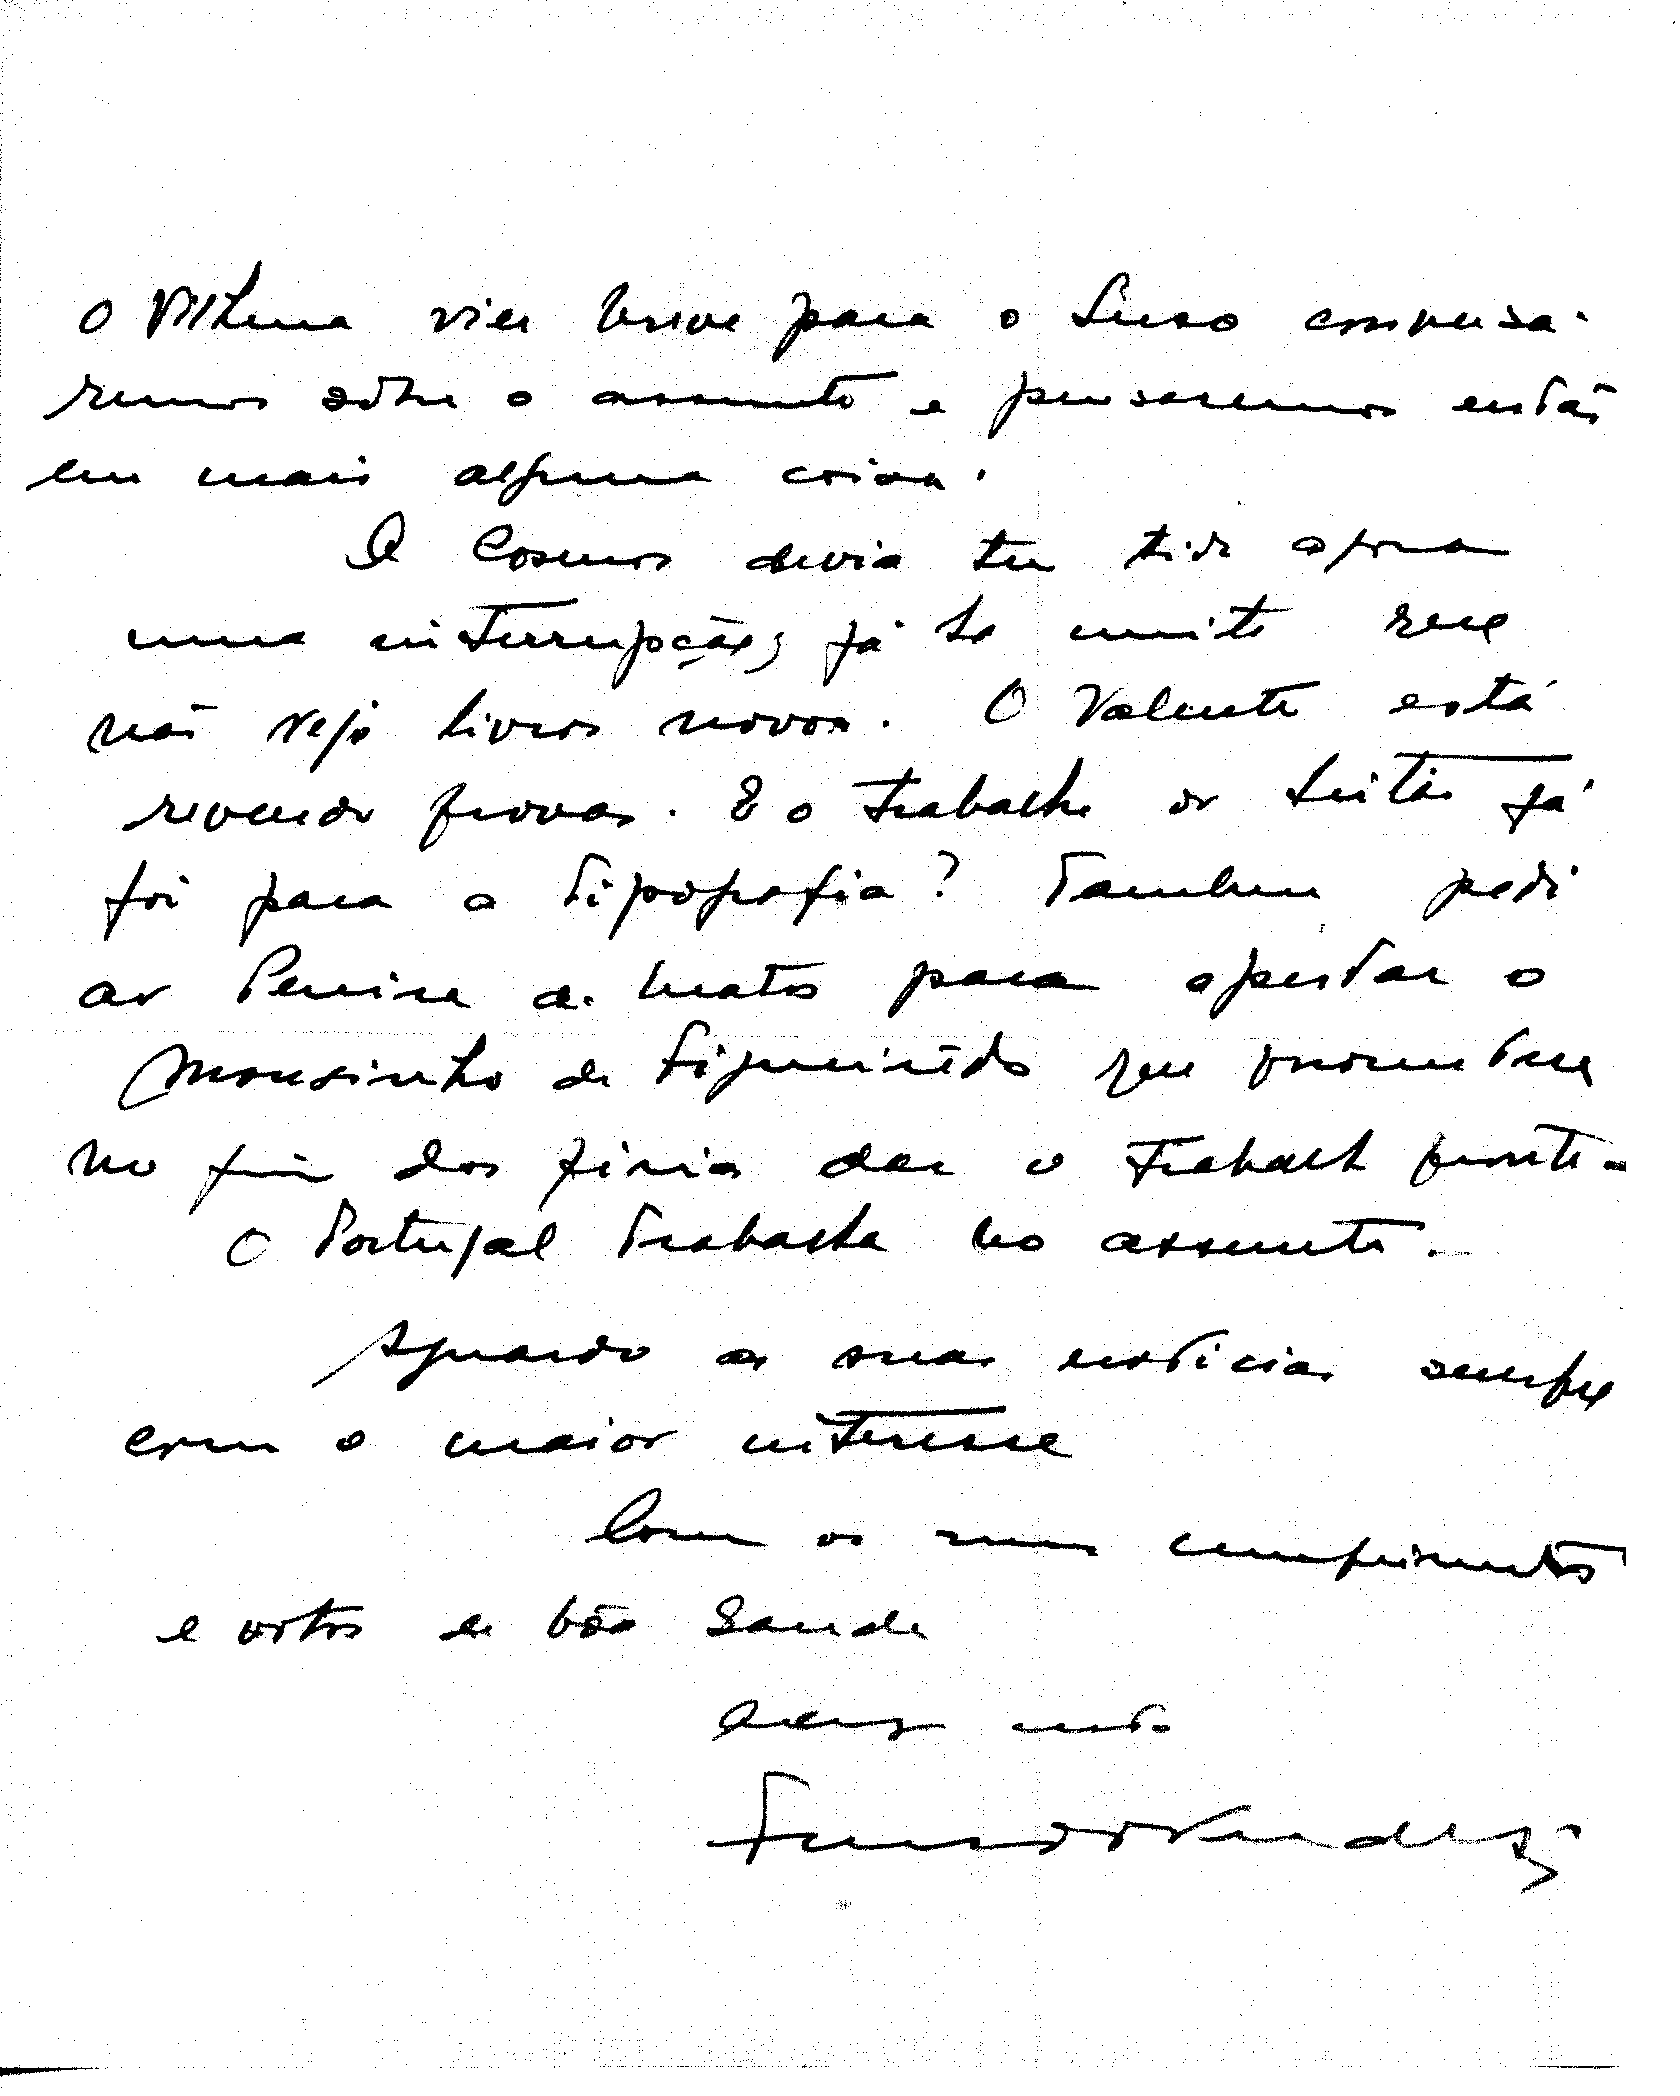 O Vilhena vier breve para o Luso conversa-
remos sôbre o assunto e pensaremos então
em mais alguma coisa.
A Cosmos devia ter tido agora
uma interrupção; já ha muito que
não vejo livros novos. O Valente está
revendo provas. E o trabalho do Leitão já
foi para a tipografia? Tambem pedi
ao Pereira de Matos para apertar o
Mousinho de Figueirêdo que prometeu
no fim das férias dar o trabalho pronto.
O Portugal trabalha no assunto.
Aguardo as suas noticias sempre
com o maior interesse
Com os meus cumprimentos
e votos de bôa saude